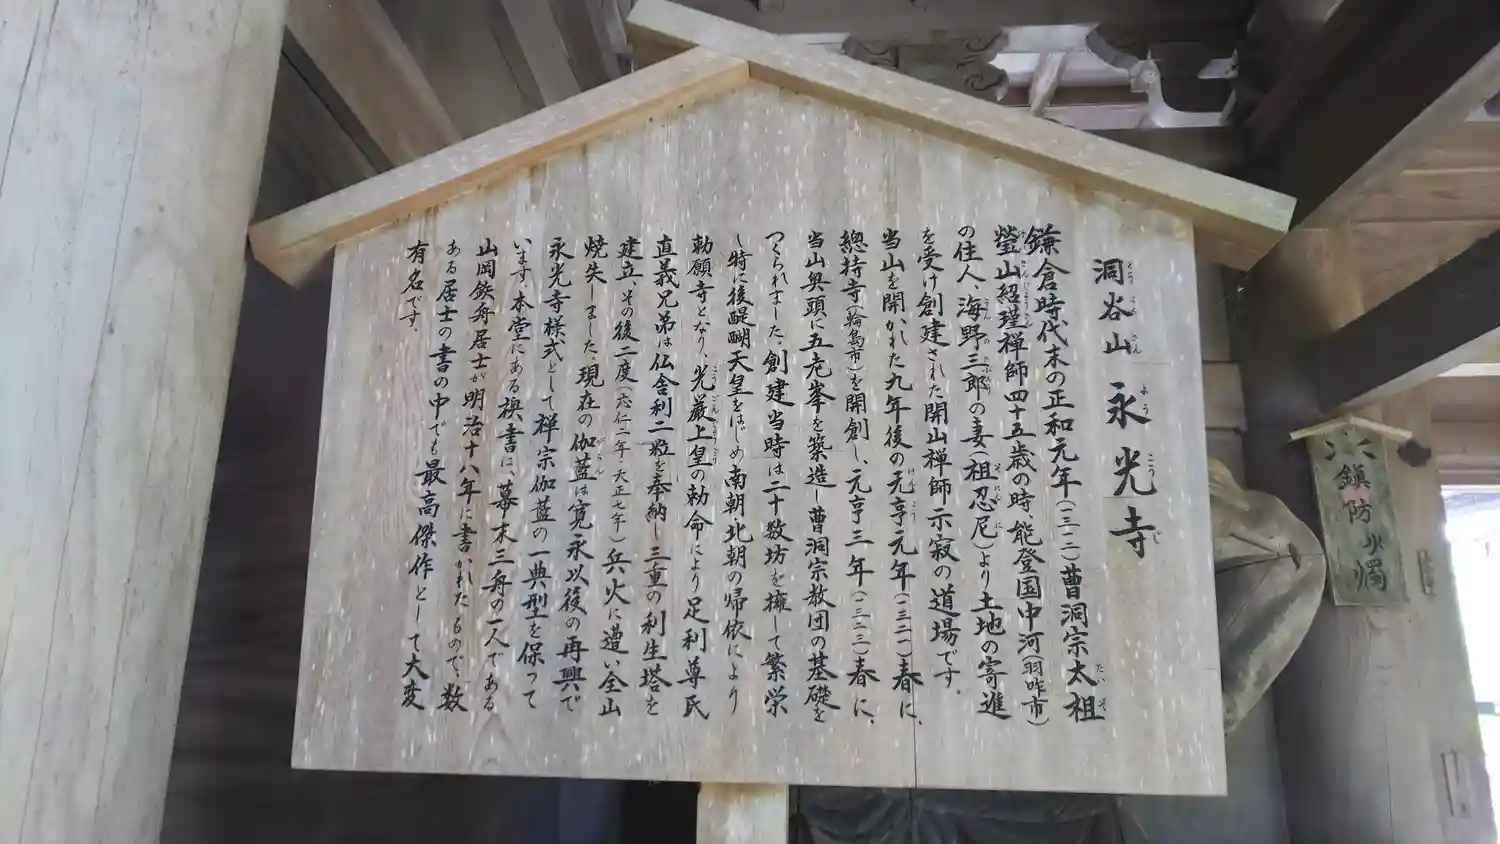 洞谷山 永光寺
鎌倉時代末の正和元年(一三一二)曹洞宗太祖
瑩山紹瑾禅師四十五歳の時、能登国中河(羽咋市)
の住人、海野三郎の妻(祖忍尼)より土地の寄進
を受け創建された開山禅師示寂の道場です。
当山を開かれた九年後の元亨元年(一三二一)春に、
總持寺(輪島市)を開創し、元亨三年(一三二三)春に、
当山奥頭に五老峯を築造し曹洞宗教団の基礎を
つくられました。創建当時は二十数坊を擁して繁栄
し特に後醍醐天皇をはじめ南朝北朝の帰依により
勅願寺となり、光厳上皇の勅命により足利尊氏
直義兄弟は仏舎利二粒を奉納し三重の利生塔を
建立、その後二度(応仁二年・天正七年)兵火に遭い全山
焼失しました。現在の伽藍は寛永以後の再興で
永光寺様式として禅宗伽藍の一典型を保って
います。本堂にある襖書は、幕末三舟の一人である
山岡鉄舟居士が明治十八年に書かれたもので、数
ある居士の書の中でも最高傑作として大変
有名です。
鎮防火燭